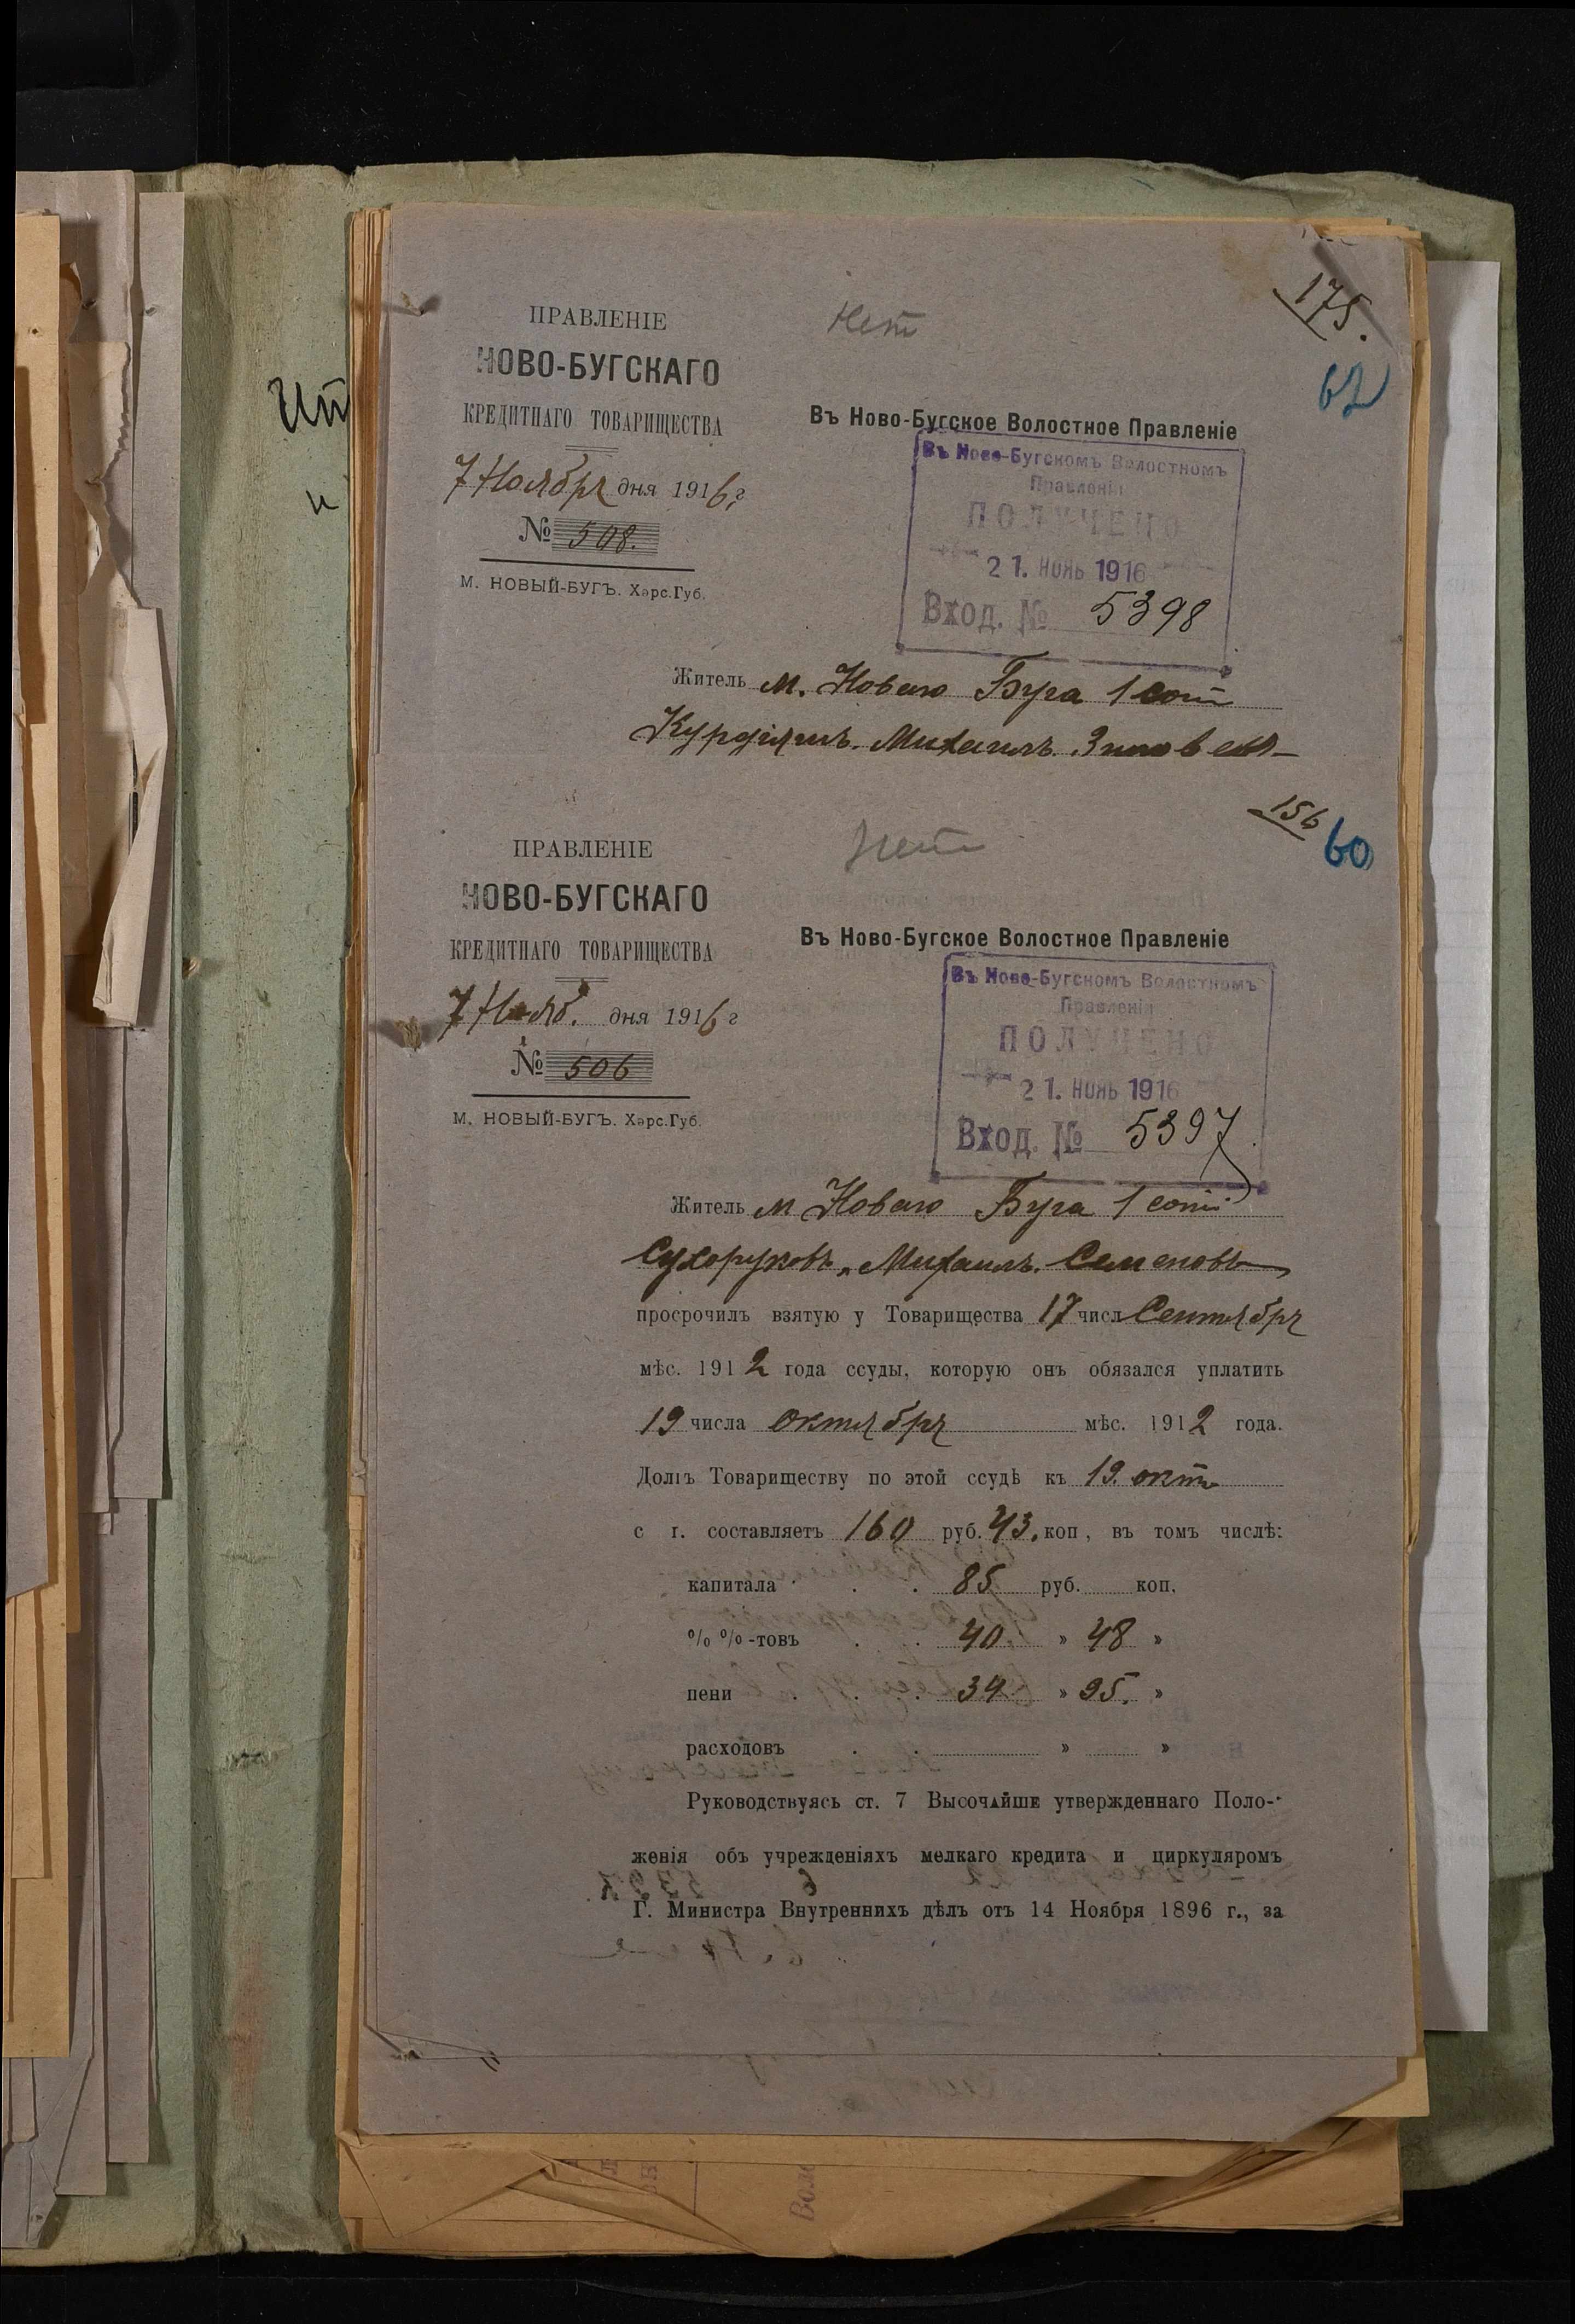 Нет
175.
62
ПРАВЛЕНІЕ
НОВО-БУГСКАГО
КРЕДИТНАГО ТОВАРИЩЕСТВА
7 Ноября дня 1916 г
№ 508.
М. НОВЫЙ-БУГЪ. Хэрс.Губ.
Въ Ново-Бугское Волостное Правленіе
Въ Ново-Бугскомъ Волостномъ
Правленіи
ПОЛУЧЕНО
21. НОЯЬ 1916
Вход. № 5398
Житель м. Новаго Буга 1 сот
Михаилъ
156
60
Нет
ПРАВЛЕНІЕ
НОВО-БУГСКАГО
КРЕДИТНАГО ТОВАРИЩЕСТВА
7 Нояб. дня 1916 г
№ 506
М. НОВЫЙ-БУГЪ. Хэрс.Губ.
Въ Ново-Бугское Волостное Правленіе
Въ Ново-Бугскомъ Волостномъ
Правленіи
ПОЛУЧЕНО
21. НОЯЬ 1916
Вход. № 5397
Житель м Новаго Буга 1 сот
Сухоруковъ Михаилъ Семеновъ
просрочилъ взятую у Товарищества 17 числ Сентября
мѣс. 1912 года ссуды, которую онъ обязался уплатить
19 числа октября мѣс. 1912 года.
Долгъ Товариществу по этой ссудѣ къ 19. окт
с г. составляетъ 160 руб. 43. коп, въ томъ числѣ:
капитала . . 85 руб. коп.
% % -товъ . . 40. » 48 »
пени . . . 34 » 95. »
расходовъ . . » »
Руководствуясь ст. 7 Высочайше утвержденнаго Поло-
женія объ учрежденіяхъ мелкаго кредита и циркуляромъ
Г. Министра Внутреннихъ дѣлъ отъ 14 Ноября 1896 г., за